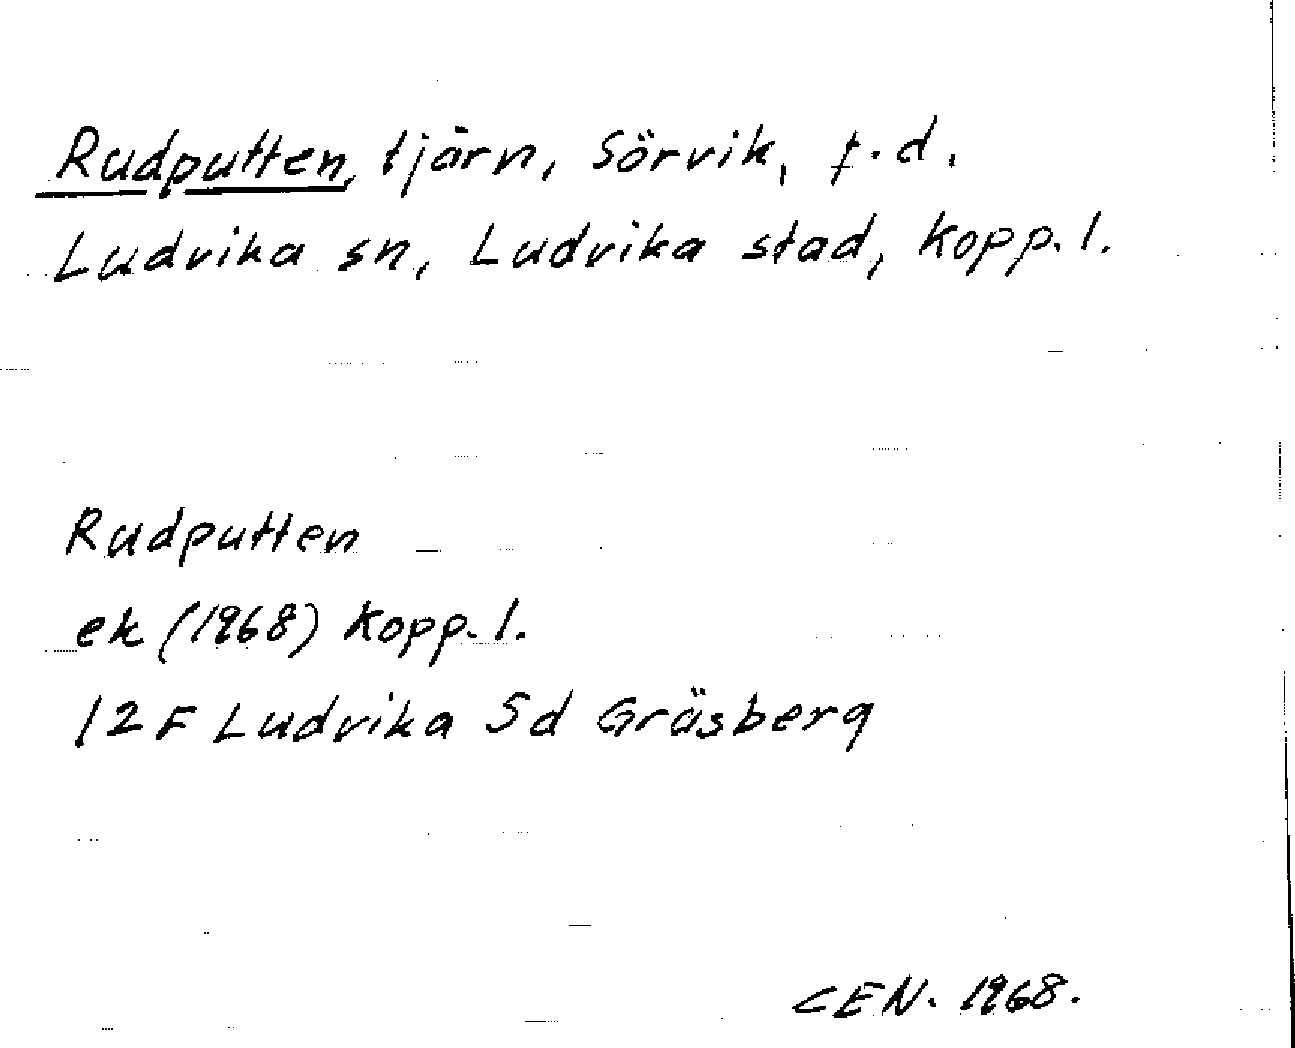 Rudputten, tjärn, Sörvik, f.d.
Ludvika sn, Ludvika stad, Kopp.l.
Rudputten
ek (1968) Kopp.l.
12F Ludvika 5d Gräsberg
CEN. 1968.